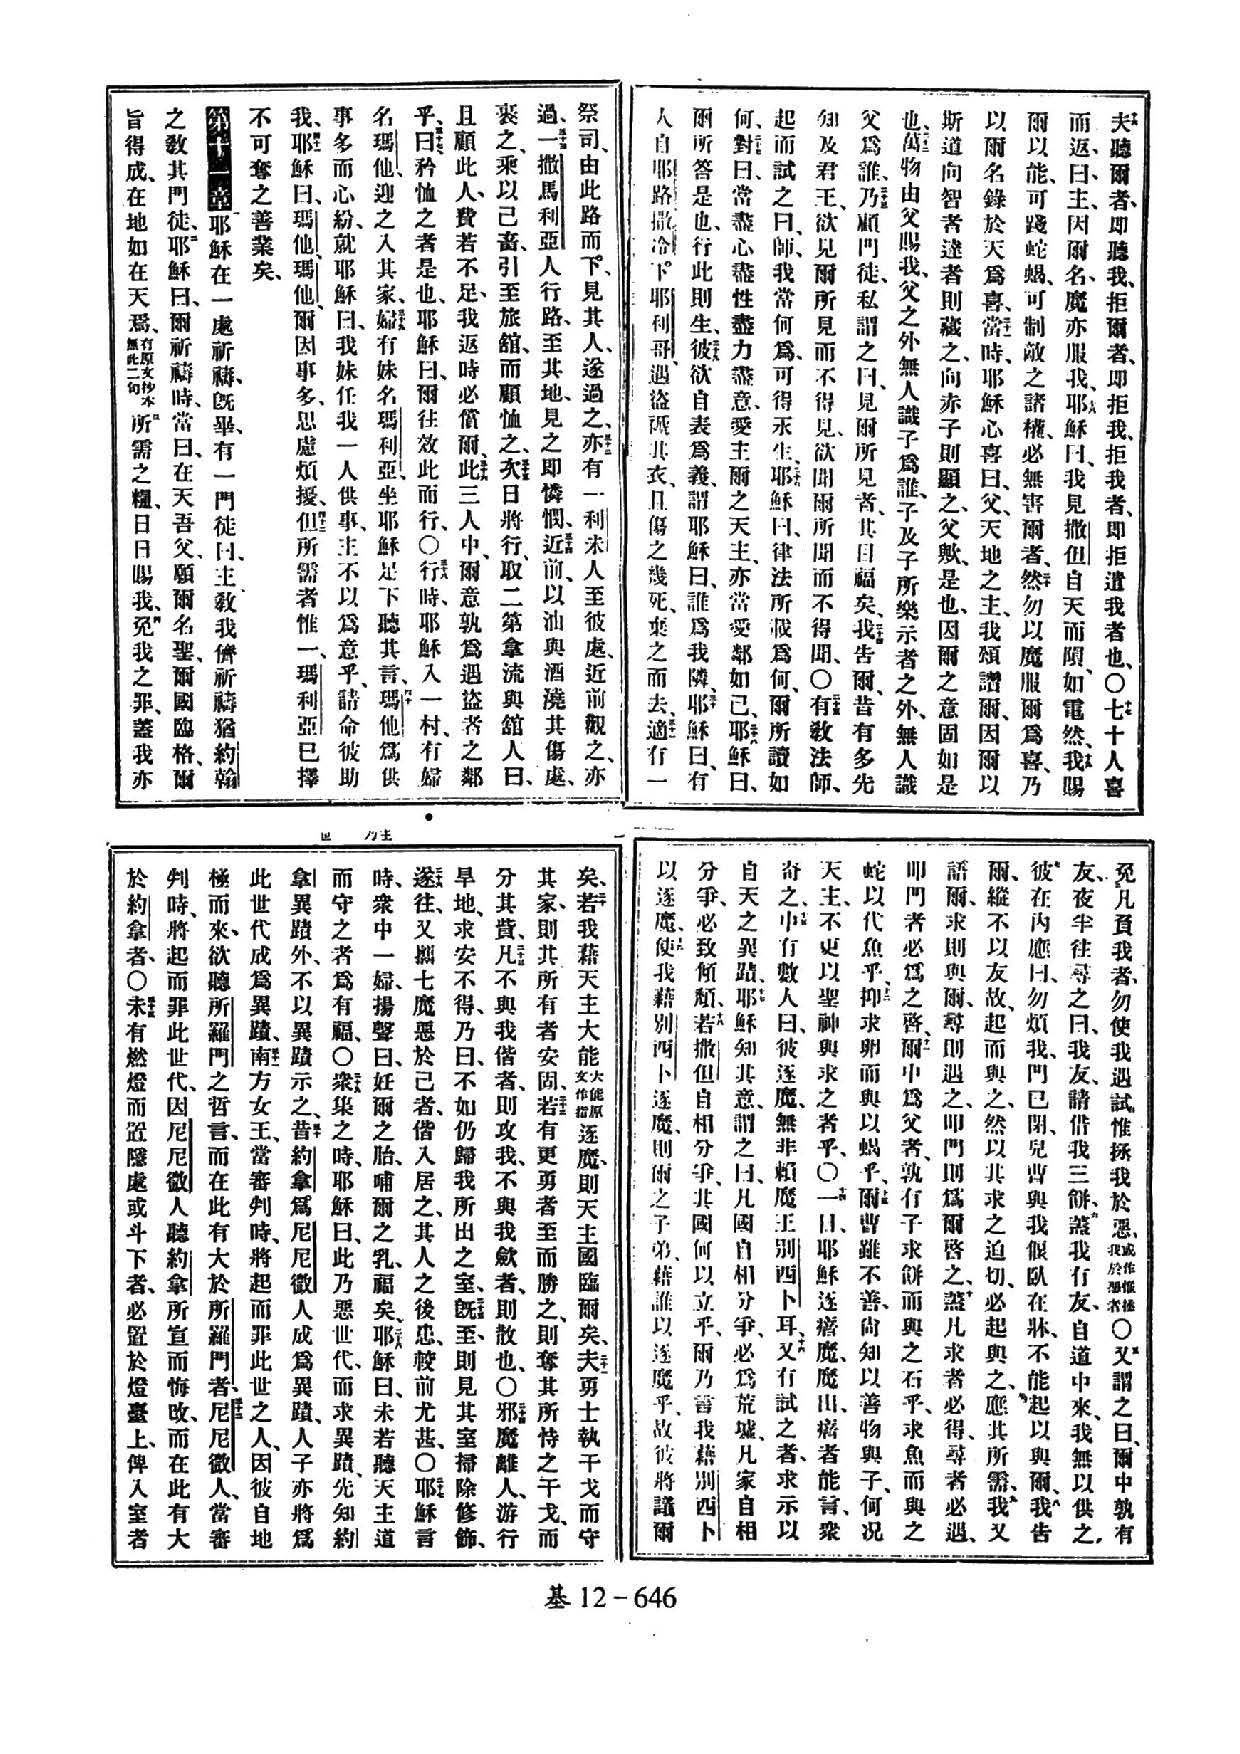 夫聽爾者、即聽我、拒爾者、即拒我、拒我者、即拒遣我者也、〇七十人喜
而返、曰、主、因爾名、魔亦服我、耶穌曰、我見撒但自天而隕、如電然、我賜
爾以能、可踐蛇蝎、可制敵之諸權、必無害爾者、然勿以魔服爾爲喜、乃
以爾名錄於天爲喜、當時、耶穌心喜曰、父、天地之主、我頌讚爾、因爾以
斯道向智者達者則藏之、向赤子則顯之、父歟、是也、因爾之意固如是
也、萬物由父賜我、父之外無人識子爲誰、子及子所樂示者之外、無人識
父爲誰、乃顧門徒、私謂之曰、見爾所見者、其目福矣、我告爾、昔有多先
知及君王、欲見爾所見而不得見、欲聞爾所聞而不得聞、〇有教法師、
起而試之曰、師、我當何爲、可得永生、耶穌曰、律法所載爲何、爾所讀如
何、對曰、當盡心盡性盡力盡意愛主爾之天主、亦當愛鄰如己、耶穌曰、
爾所答是也、行此則生、彼欲自表爲義、謂耶穌曰、誰爲我隣、耶穌曰、有
人自耶路撒冷下耶利哥、遇盜、褫其衣、且傷之幾死、棄之而去、適有一
祭司、由此路而下、見其人、遂過之、亦有一利未人至彼處、近前觀之、亦
過、一撒馬利亞人行路、至其地、見之即憐憫、近前、以油與酒澆其傷處、
裹之、乘以己畜、引至旅舘、而顧恤之、次日將行、取二第拿流與舘人曰、
且顧此人、費若不足、我返時必償爾、此三人中、爾意孰爲遇盜者之鄰
乎、曰、矜恤之者是也、耶穌曰、爾往效此而行、〇行時、耶穌入一村、有婦
名瑪他、迎之入其家、婦有妹名瑪利亞、坐耶穌足下聽其言、瑪他爲供
事多而心紛、就耶穌曰、我妹任我一人供事、主不以爲意乎、請命彼助
我、耶穌曰、瑪他、瑪他、爾因事多、思慮煩擾、但所需者惟一、瑪利亞已擇
不可奪之善業矣、
第十一章 耶穌在一處祈禱、旣畢、有一門徒曰、主教我儕祈禱、猶約翰
之教其門徒、耶穌曰、爾祈禱時、當曰、在天吾父、願爾名聖、爾國臨格、爾
旨得成、在地如在天焉、有原文抄本無此二句 所需之糧、日日賜我、免我之罪、蓋我亦
免凡負我者、勿使我遇試、惟拯我於惡、或作惟拯我於惡者 〇又謂之曰、爾中孰有
友、夜半往尋之曰、我友、請借我三餅、蓋我有友、自道中來、我無以供之、
彼在內應曰、勿煩我、門已閉、兒曹與我偃臥在牀、不能起以與爾、我告
爾、縱不以友故、起而與之、然以其求之迫切、必起與之、應其所需、我又
語爾、求則與爾、尋則遇之、叩門則爲爾啓之、蓋凡求者必得、尋者必遇、
叩門者必爲之啓、爾中爲父者、孰有子求餅而與之石乎、求魚而與之
蛇以代魚乎、抑求卵而與以蝎乎、爾曹雖不善、尙知以善物與子、何况
天主、不更以聖神與求之者乎、〇一日、耶穌逐瘖魔、魔出、瘖者能言、衆
奇之、中有數人曰、彼逐魔、無非賴魔王別西卜耳、又有試之者、求示以
自天之異蹟、耶穌知其意、謂之曰、凡國自相分爭、必爲荒墟、凡家自相
分爭、必致傾頹、若撒但自相分爭、其國何以立乎、爾乃言我藉別西卜
以逐魔、使我藉別西卜逐魔、則爾之子弟、藉誰以逐魔乎、故彼將議爾
矣、若我藉天主大能大能原文作指逐魔、則天主國臨爾矣、夫勇士執干戈而守
其家、則其所有者安固、若有更勇者至而勝之、則奪其所恃之干戈、而
分其貲、凡不與我偕者、則攻我、不與我歛者、則散也、〇邪魔離人、游行
旱地、求安不得、乃曰、不如仍歸我所出之室、旣至、則見其室掃除修飾、
遂往、又攜七魔惡於己者、偕入居之、其人之後患、較前尤甚、〇耶穌言
時、衆中一婦、揚聲曰、妊爾之胎、哺爾之乳、福矣、耶穌曰、未若聽天主道
而守之者爲有福、〇衆集之時、耶穌曰、此乃惡世代、而求異蹟、先知約
拿異蹟外、不以異蹟示之、昔約拿爲尼尼微人成爲異蹟、人子亦將爲
此世代成爲異蹟、南方女王、當審判時、將起而罪此世之人、因彼自地
極而來、欲聽所羅門之哲言、而在此有大於所羅門者、尼尼微人、當審
判時、將起而罪此世代、因尼尼微人聽約拿所宣而悔改、而在此有大
於約拿者、〇未有燃燈而置隱處或斗下者、必置於燈臺上、俾入室者
基12-646